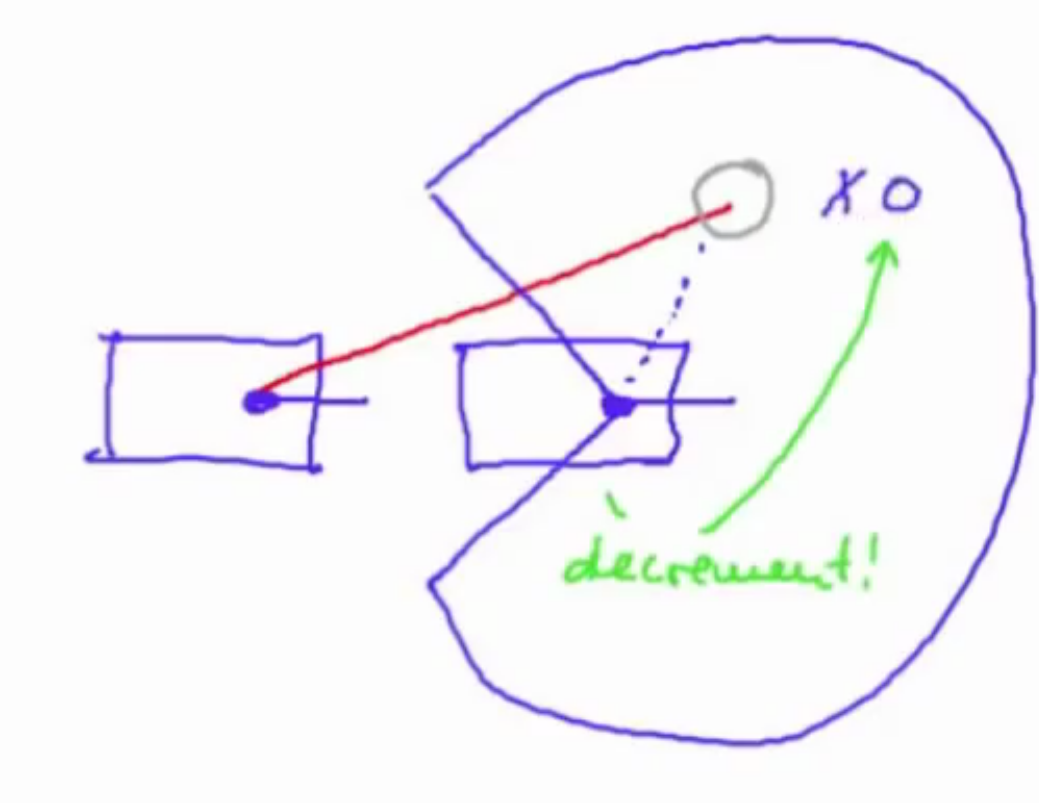 X O
decrement!